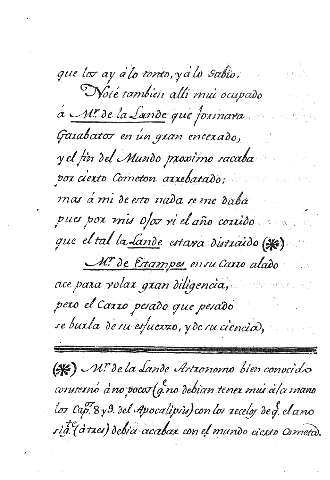 que los ay á lo tonto, y á lo Sabio.
Noté tambien alli mui ocupado
á Mr. de la Lande que formava
Garabatos en un gran encerado,
y el fin del Mundo proximo sacaba
por cierto Cometon arrebatado:
mas á mi de esto nada se me daba
pues por mis Ojos vi el año corrido
que el tal la Lande estava distraido (*)
Mr. de Estampes en su Carro alado
ace para volar gran diligencia,
pero el Carro pesado que pesado
se burla de su esfuerzo, y de su ciencia,
(*) Mr. de la Lande Astronomo bien conocido
consternó á no pocos (q.e no debian tener mui á la mano
los Cap.s 8 y 9. del Apocalipsis) con los recelos de q.e el ano
sig.te (á tres) debia acabar con el mundo cierto Cometa.